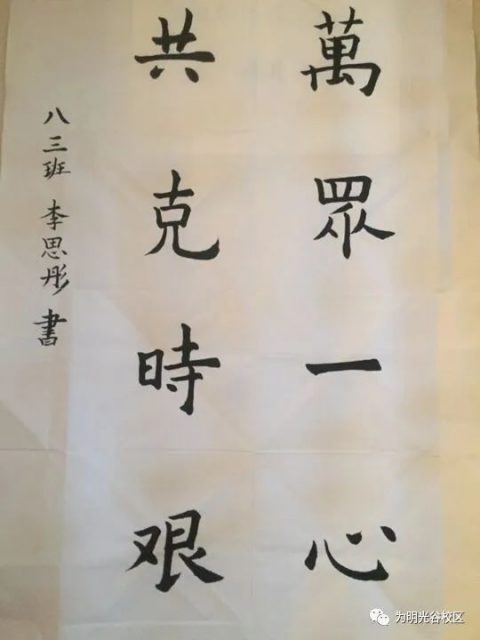 萬眾一心
共克時艱
八三班 李思彤 書
为明光谷校区